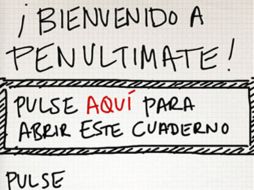 ¡BIENVENIDO A
PENULTIMATE!
PULSE AQUÍ PARA
ABRIR ESTE CUADERNO
PULSE